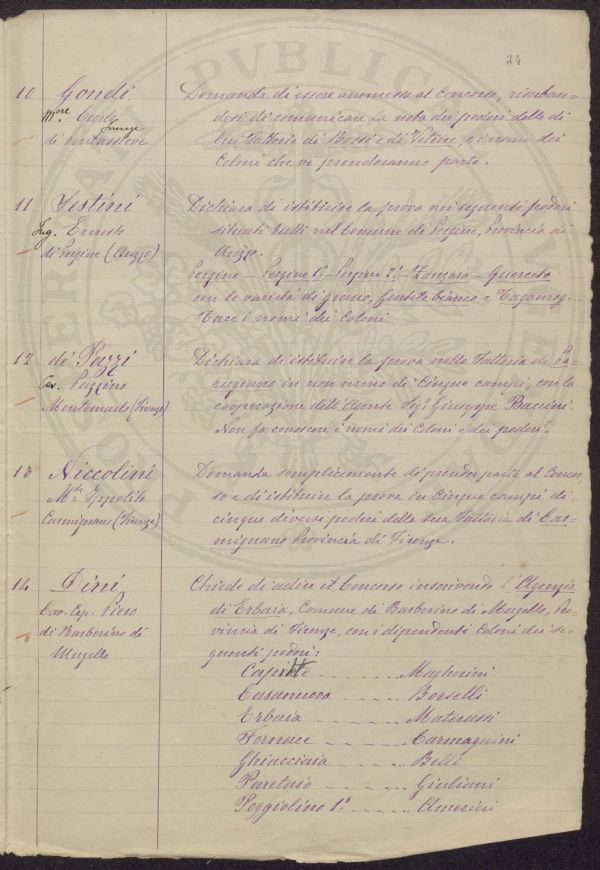 34
10 Gondi Domanda di essere ammesso al Concorso, riserban-
M.se Carlo Firenze dosi di comunicare la nota dei poderi delle di
di Pontassieve lui Fattorie di Bossi e di Vetrice, e i nomi dei
Coloni che vi prenderanno parte.
11 Testini Dichiara di istituire la prova nei seguenti poderi
Ing. Ernesto situati tutti nel Comune di Pergine, Provincia di
di Pergine (Arezzo) Arezzo.
Pergine - Pergine 1º - Pergine 2º - Zanzara - Querceto
con le varietà di grano, Gentile bianco e Taganrog.
Tace i nomi dei Coloni
12 de' Pazzi Dichiara di istituire la prova nella Fattoria di Pa-
Cav. Pazzino rugiano in non meno di Cinque campi, con la
Montemurlo (Firenze) cooperazione dell'Agente Sig.r Giuseppe Baccini.
Non fa conoscere i nomi dei Coloni e dei poderi.
13 Niccolini Domanda semplicemente di prender parte al Concor-
M.se Ippolito so e di istituire la prova in Cinque campi di
Carmignano (Firenze) cinque diversi poderi della sua Fattoria di Car-
mignano Provincia di Firenze.
14 Dini Chiede di adire al Concorso inscrivendo l'Agenzia
Cav. Cap. Piero di Erbaia, Comune di Barberino di Mugello, Pro-
di Barberino di vincia di Firenze, con i dipendenti Coloni dei se-
Mugello guenti poderi:
Capitte - - - - - Magherini
Casanuova - - - - - Borselli
Erbaia - - - - - Materassi
Fornace - - - - - Carmagnini
Ghiacciaia - - - - - Belli
Paretaio - - - - - Giuliani
Poggiolino 1º - - - - - Amerini